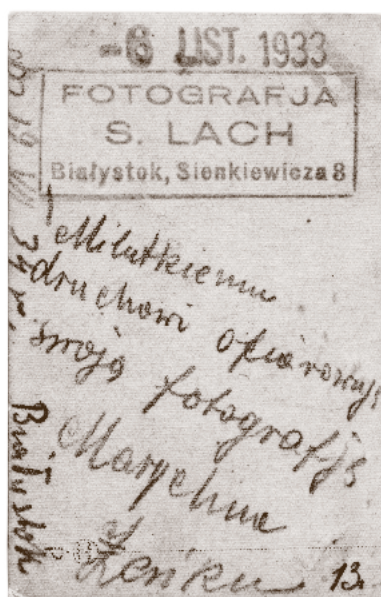 -6 LIST. 1933
FOTOGRAFJA
S. LACH
Białystok, Sienkiewicza 8
Milutkiemu
druchowi ofiarowuję
swoją fotografję
Marychna
Białystok
13.